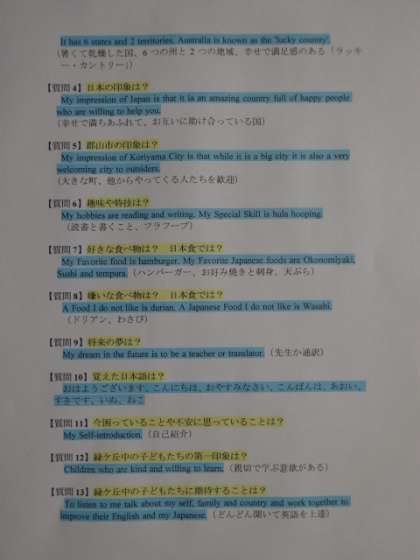 It has 6 states and 2 territories. Australia is known as the 'lucky country'.
(暑くて乾燥した国、6つの州と2つの地域、幸せで満足感のある「ラッキ
ー・カントリー」)
【質問4】日本の印象は?
My impression of Japan is that it is an amazing country full of happy people
who are willing to help you.
(幸せで満ちあふれて、お互いに助け合っている国)
【質問5】郡山市の印象は?
My impression of Koriyama City is that while it is a big city it is also a very
welcoming city to outsiders.
(大きな町、他からやってくる人たちを歓迎)
【質問6】趣味や特技は?
My hobbies are reading and writing. My Special Skill is hula hooping.
(読書と書くこと、フラフープ)
【質問7】好きな食べ物は? 日本食では?
My Favorite food is hamburger. My Favorite Japanese foods are Okonomiyaki,
Sushi and tempura.(ハンバーガー、お好み焼きと刺身、天ぷら)
【質問8】嫌いな食べ物は? 日本食では?
A Food I do not like is durian. A Japanese Food I do not like is Wasabi.
(ドリアン、わさび)
【質問9】将来の夢は?
My dream in the future is to be a teacher or translator.(先生か通訳)
【質問10】覚えた日本語は?
おはようございます、こんにちは、おやすみなさい、こんばんは、あおい、
すきです、いぬ、ねこ
【質問11】今困っていることや不安に思っていることは?
My Self-introduction.(自己紹介)
【質問12】緑ケ丘中の子どもたちの第一印象は?
Children who are kind and willing to learn.(親切で学ぶ意欲がある)
【質問13】緑ケ丘中の子どもたちに期待することは?
To listen to me talk about my self, family and country and work together to
improve their English and my Japanese.(どんどん聞いて英語を上達)